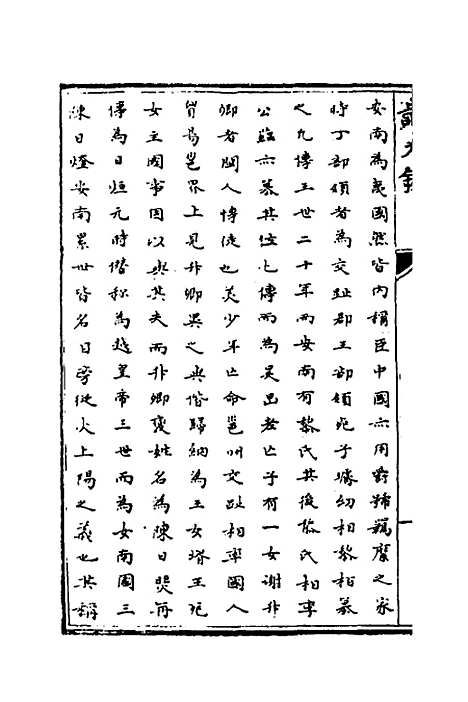 安南為夷國然皆內稱臣中國亦用爵號羈縻之宋
時丁部領者為交趾郡王部領死子璿幼相黎相篡
之九傳王世二十年而安南有黎氏其後黎氏相李
公蘊亦篡其位七傳而為昊旵老亡子有一女謝升
卿者閩人博徒也美少年亡命邕州交趾相率國人
貿易邕界上見升卿異之與偕歸納為王女壻王死
女主國事因以與其夫而升卿變姓名為陳日煚再
傳為日烜元時僭稱為越皇帝三世而為女南國三
陳日燈安南累世皆名日旁從火上陽之義也其稱